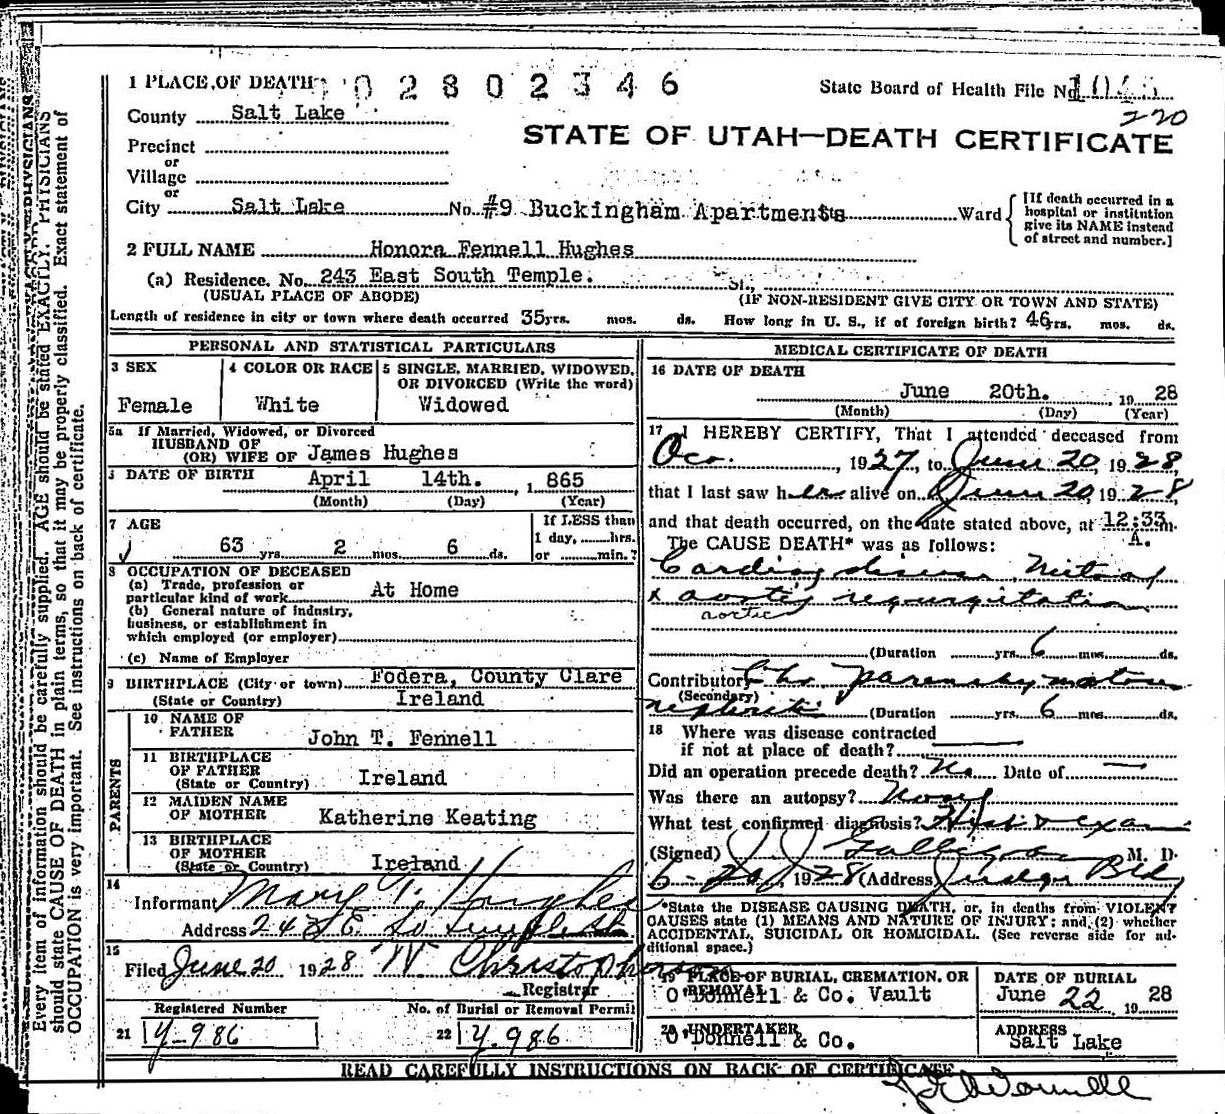 1 PLACE OF DEATH 02802346
State Board of Health File No.
220
County Salt Lake
STATE OF UTAH—DEATH CERTIFICATE
Precinct
or
Village
or
City Salt Lake No. #9 Buckingham Apartments Ward
[If death occurred in a hospital or institution give its NAME instead of street and number.]
2 FULL NAME Honora Fennell Hughes
(a) Residence. No. 243 East South Temple. St.,
(USUAL PLACE OF ABODE) (IF NON-RESIDENT GIVE CITY OR TOWN AND STATE)
Length of residence in city or town where death occurred 35 yrs. mos. ds. How long in U. S., if of foreign birth? 46 yrs. mos. ds.
PERSONAL AND STATISTICAL PARTICULARS
3 SEX
Female
4 COLOR OR RACE
White
5 SINGLE, MARRIED, WIDOWED, OR DIVORCED (Write the word)
Widowed
5a If Married, Widowed, or Divorced
HUSBAND OF
(OR) WIFE OF James Hughes
DATE OF BIRTH April 14th. , 1865
(Month) (Day) (Year)
7 AGE
63 yrs. 2 mos. 6 ds.
If LESS than
1 day, hrs.
or min.?
8 OCCUPATION OF DECEASED
(a) Trade, profession or
particular kind of work At Home
(b) General nature of industry,
business, or establishment in
which employed (or employer)
(c) Name of Employer
9 BIRTHPLACE (City or town) Fodera, County Clare
(State or Country) Ireland
PARENTS
10 NAME OF
FATHER John T. Fennell
11 BIRTHPLACE
OF FATHER
(State or Country) Ireland
12 MAIDEN NAME
OF MOTHER Katherine Keating
13 BIRTHPLACE
OF MOTHER
(State or Country) Ireland
14
Informant Mary T. Hughes
Address 243 E. So Temple
15
Filed June 20 1928 W Christopherson
Registrar
Registered Number No. of Burial or Removal Permit
21 Y-986 22 Y.986
MEDICAL CERTIFICATE OF DEATH
16 DATE OF DEATH
June 20th. , 19 28
(Month) (Day) (Year)
17 I HEREBY CERTIFY, That I attended deceased from
, 1927, to June 20, 1928,
that I last saw her alive on June 20, 1928,
and that death occurred, on the date stated above, at 12:33 m.
A.
The CAUSE DEATH* was as follows:
Cardiac disease, Mitral
x aortic regurgitation
aortic
(Duration yrs. 6 mos. ds.
Contributory Chr parenchymatous
(Secondary)
nephritis (Duration yrs. 6 mos. ds.
18 Where was disease contracted
if not at place of death?
Did an operation precede death? No Date of —
Was there an autopsy? None
What test confirmed diagnosis? Hist & exam
(Signed) J J Galligan M. D.
6-20, 1928 (Address) Judge Bld
*State the DISEASE CAUSING DEATH, or, in deaths from VIOLENT
CAUSES state (1) MEANS AND NATURE OF INJURY; and (2) whether
ACCIDENTAL, SUICIDAL OR HOMICIDAL. (See reverse side for ad-
ditional space.)
19 PLACE OF BURIAL, CREMATION, OR
REMOVAL
O'Donnell & Co. Vault
DATE OF BURIAL
June 22 19 28
20 UNDERTAKER
O'Donnell & Co.
ADDRESS
Salt Lake
READ CAREFULLY INSTRUCTIONS ON BACK OF CERTIFICATE
Every item of information should be carefully supplied. AGE should be stated EXACTLY. PHYSICIANS
should state CAUSE OF DEATH in plain terms, so that it may be properly classified. Exact statement of
OCCUPATION is very important. See instructions on back of certificate.